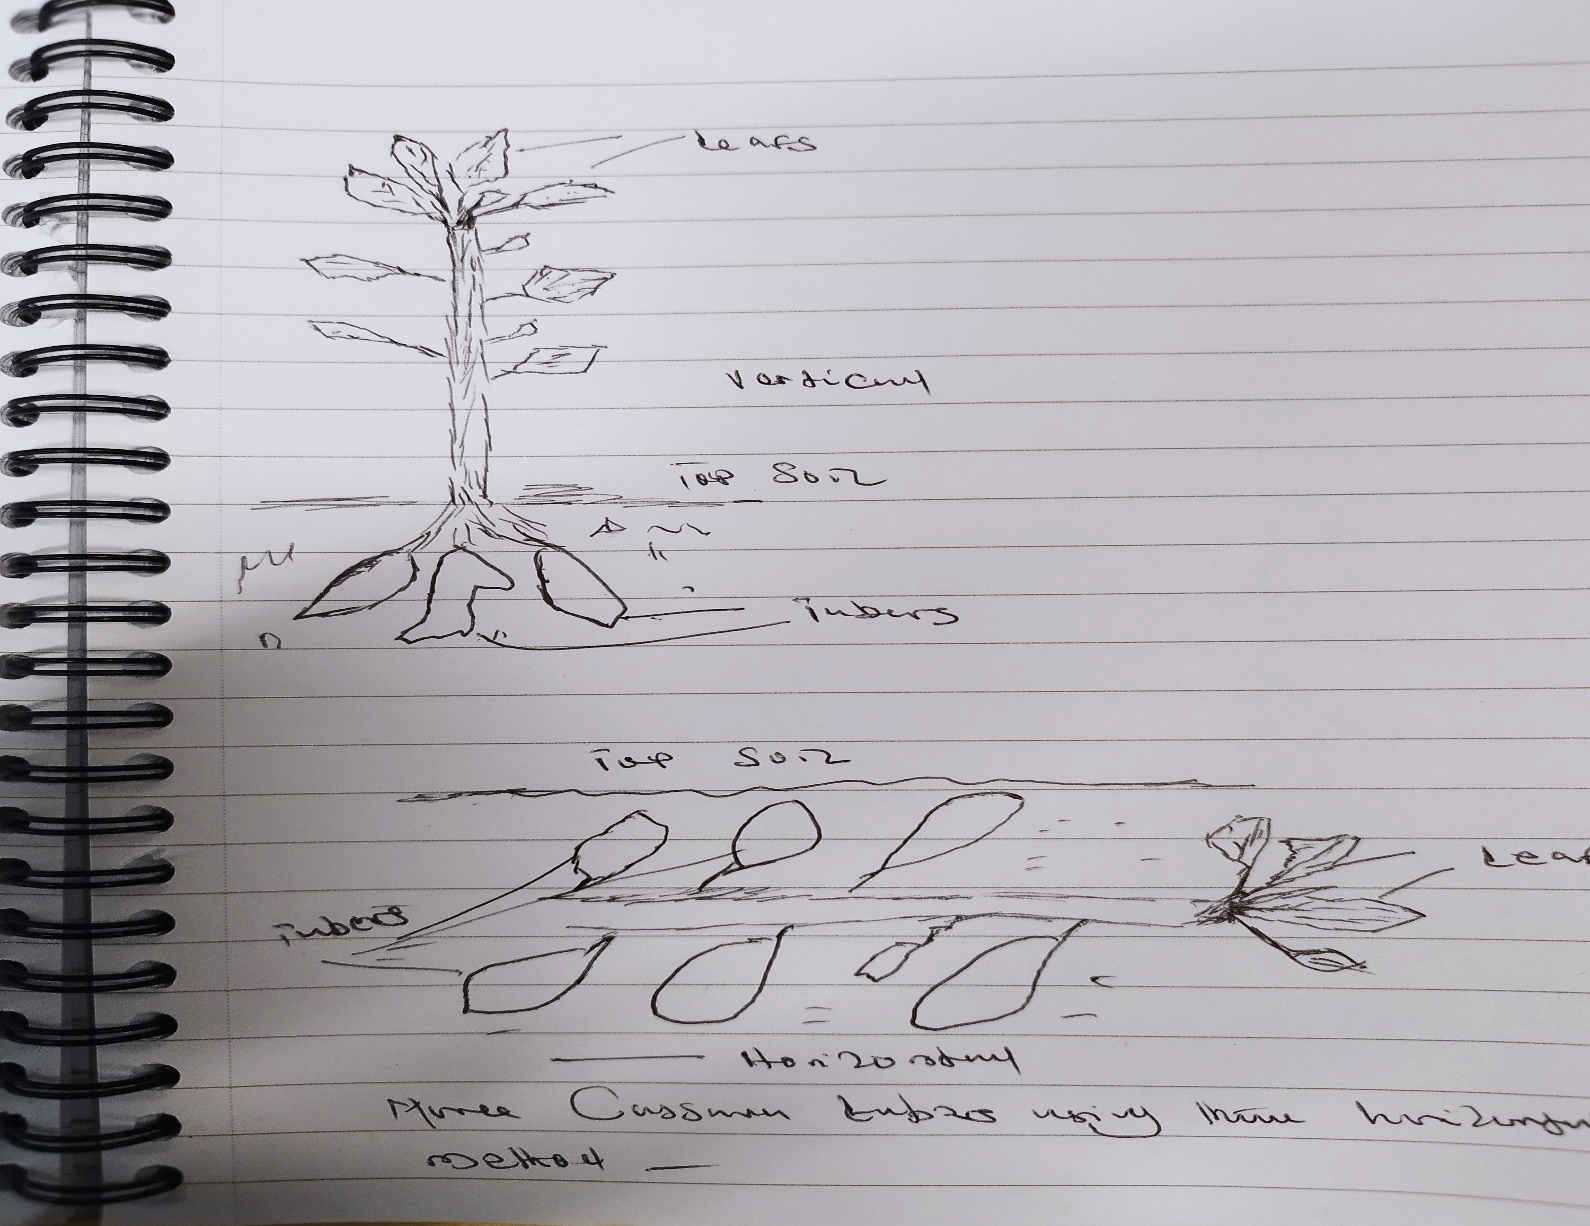 Leafs
Vertical
Top Soil
Tubers
Top Soil
Leaf
Tubers
Horizontal
More Cassava tubers using the horizontal
method